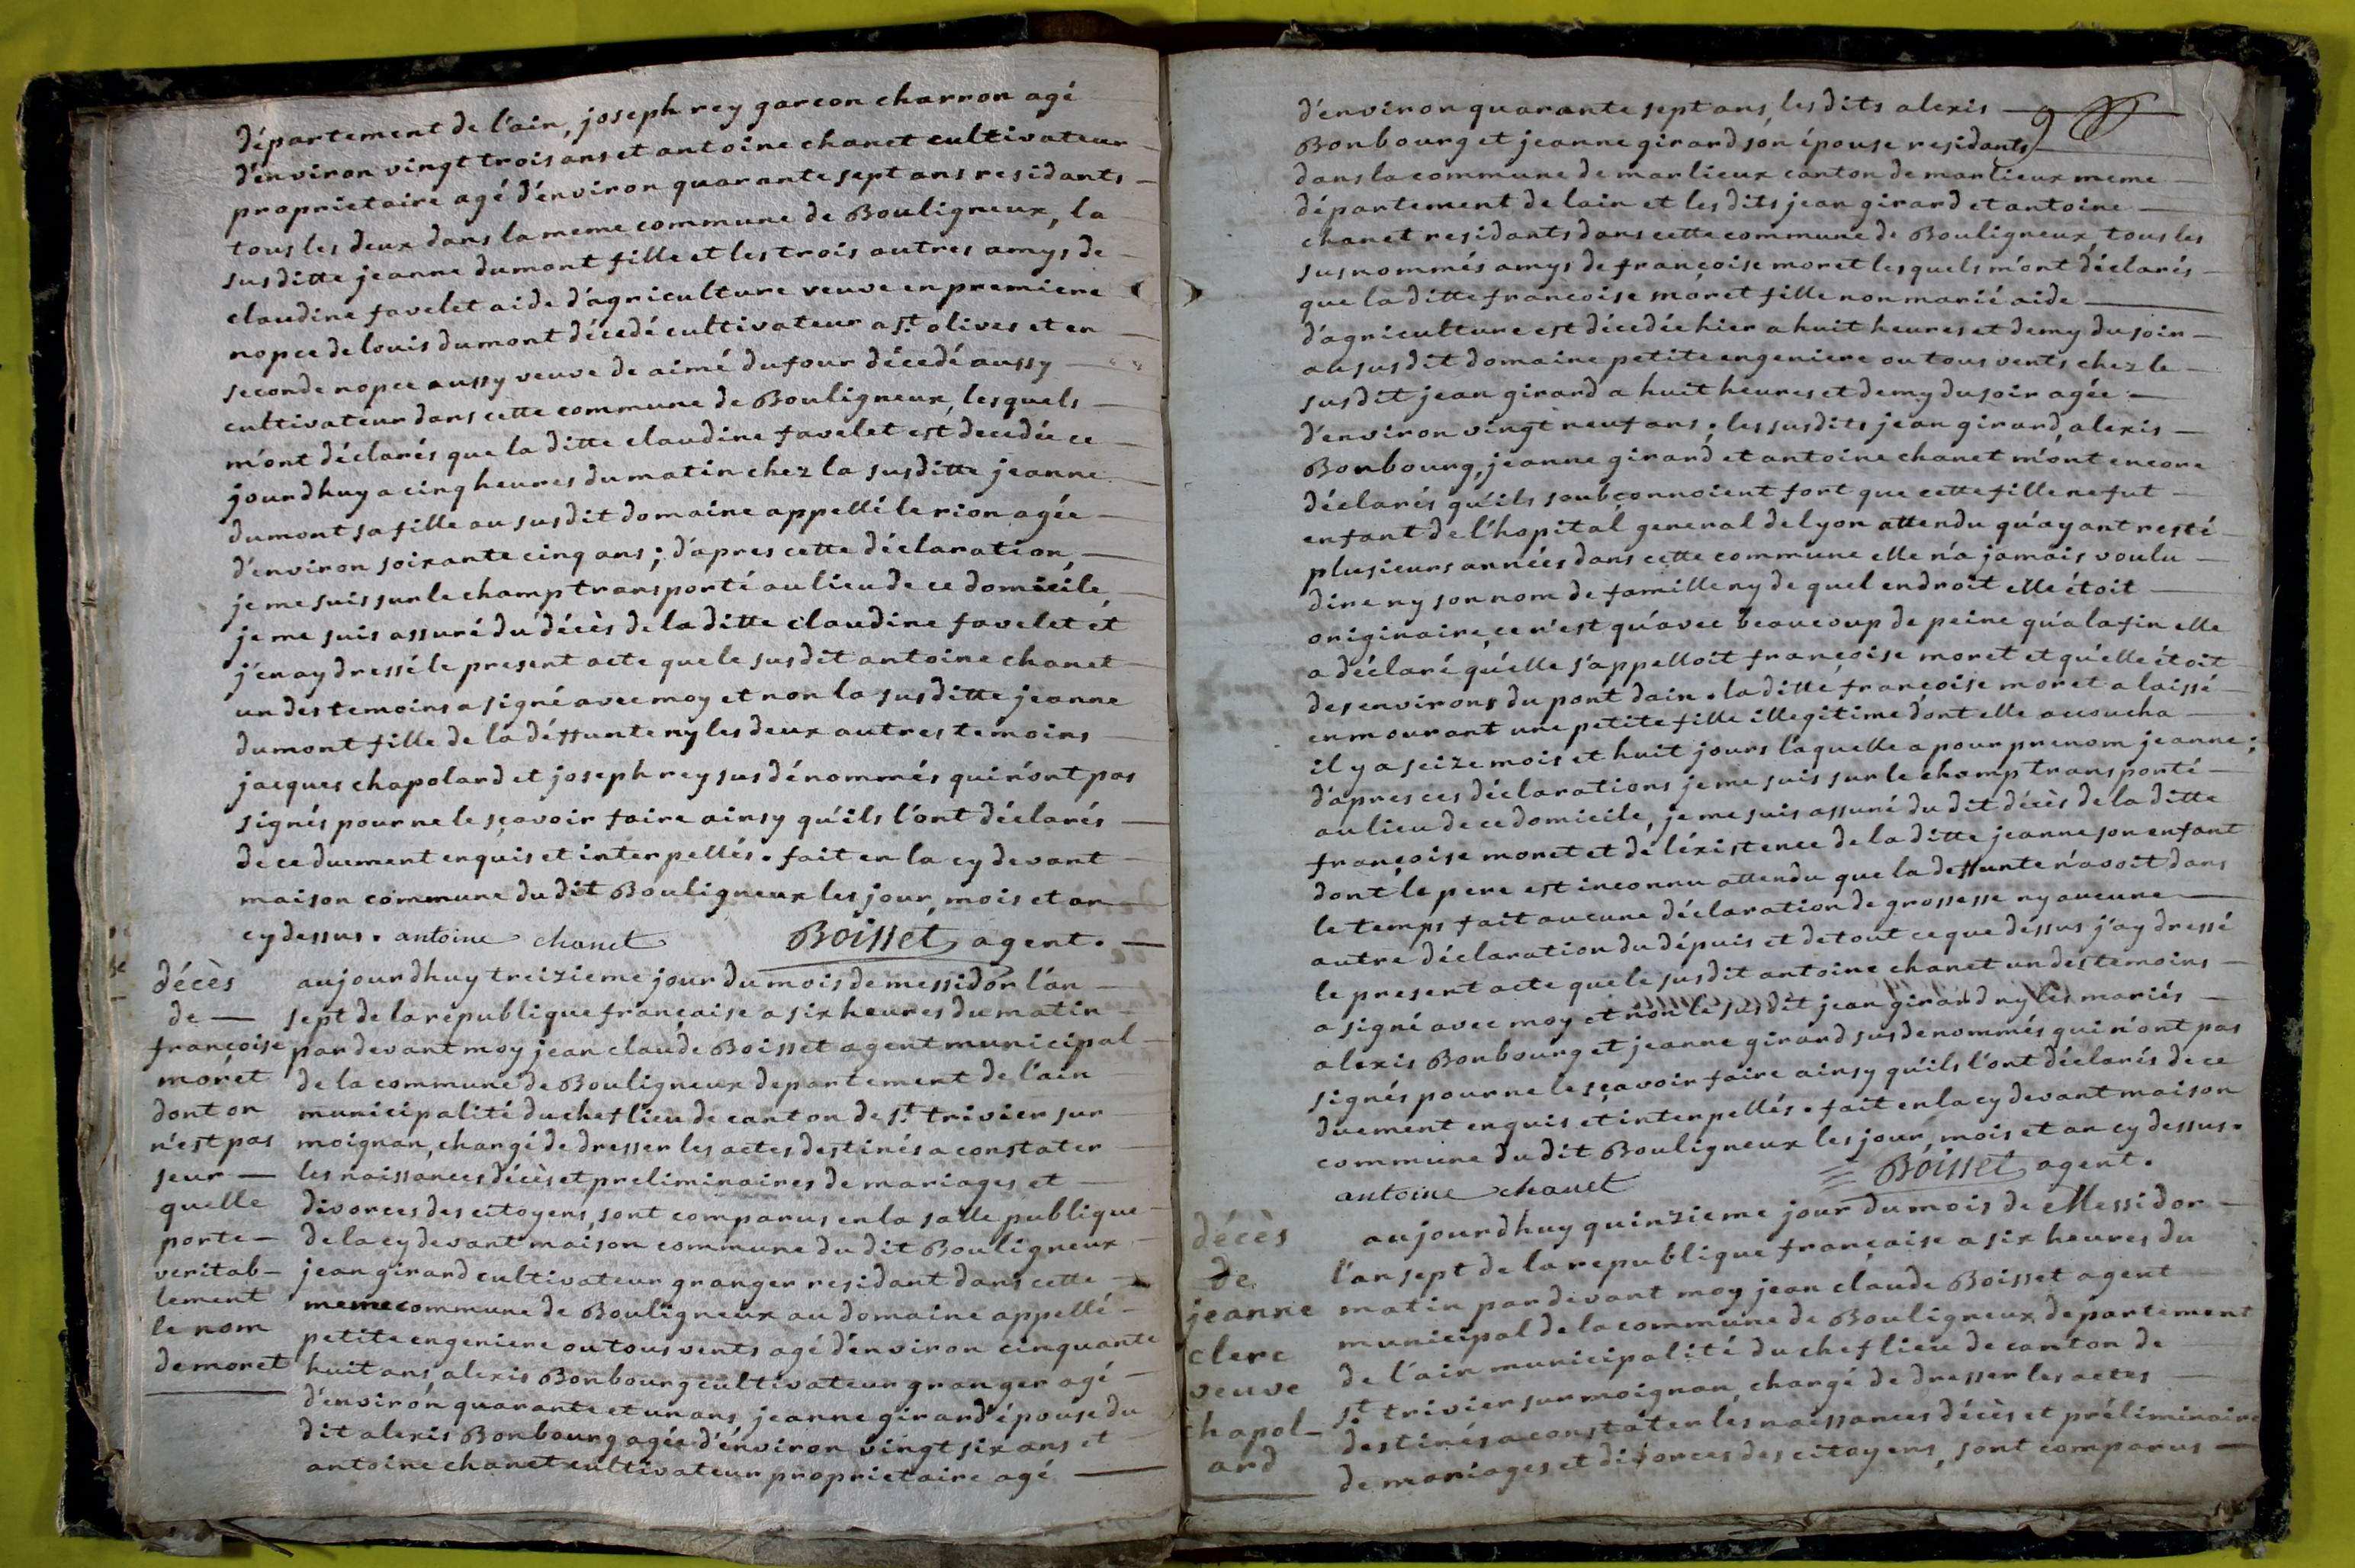 département de l'ain, joseph rey garcon charron agé
d'environ vingt trois ans et antoine chanet cultivateur
proprietaire agé d'environ quarante sept ans residants
tous les deux dans la meme commune de Bouligneux, la
susditte jeanne dumont fille et les trois autres amys de
claudine favelet aide d'agriculture veuve en premiere
nopce de louis dumont décedé cultivateur a st olives et en
seconde nopce aussy veuve de aimé dufour décedé aussy
cultivateur dans cette commune de Bouligneux, lesquels
m'ont déclarés que la ditte claudine favelet est decedée ce
jourdhuy a cinq heures du matin chez la susditte jeanne
dumont sa fille au susdit domaine appellé le rion agée
d'environ soixante cinq ans ; d'apres cette déclaration,
je me suis sur le champ transporté au lieu de ce domicile,
je me suis assuré du décès de la ditte claudine favelet et
j'en ay dressé le present acte que le susdit antoine chanet
un des temoins a signé avec moy et non la susditte jeanne
dumont fille de la déffunte ny les deux autres temoins
jacques chapolard et joseph rey susdénommés qui n'ont pas
signés pour ne le sçavoir faire ainsy qu'ils l'ont déclarés
de ce duement enquis et interpellés. fait en la cy devant
maison commune du dit Bouligneux les jour, mois et an
cy dessus. antoine chanet Boisset agent.
décès
de
françoise
moret
dont on
n'est pas
seur
quelle
porte
veritab-
lement
le nom
de moret
aujourdhuy treizieme jour du mois de messidor l'an
sept de la république française a six heures du matin
par devant moy jean claude Boisset agent municipal
de la commune de Bouligneux departement de l'ain
municipalité du chef lieu de canton de st trivier sur
moignan, chargé de dresser les actes destinés a constater
les naissances décès et preliminaires de mariages et
divorces des citoyens, sont comparus en la salle publique
de la cy devant maison commune du dit Bouligneux
jean girard cultivateur granger residant dans cette
meme commune de Bouligneux au domaine appellé
petite engeniere ou tous vents agé d'environ cinquante
huit ans, alexis Bonbourg cultivateur granger agé
d'environ quarante et un ans, jeanne girard épouse du
dit alexis Bonbourg agée d'environ vingt six ans et
antoine chanet cultivateur proprietaire agé
d'environ quarante sept ans, les dits alexis
Bonbourg et jeanne girard son épouse residants
dans la commune de marlieux canton de marlieux meme
département de lain et les dits jean girard et antoine
chanet residants dans cette commune de Bouligneux, tous les
susnommés amys de françoise moret lesquels m'ont déclarés
que la ditte francoise moret fille non marié aide
d'agriculture est décedée hier a huit heures et demy du soir
au susdit domaine petite engeniere ou tous vents chez le
susdit jean girard a huit heures et demy du soir agée
d'environ vingt neuf ans ; les susdits jean girard, alexis
Bonbourg, jeanne girard et antoine chanet m'ont encore
déclarés qu'ils soubçonnoient fort que cette fille ne fut
enfant de l'hopital general de lyon attendu qu'ayant resté
plusieurs années dans cette commune elle n'a jamais voulu
dire ny son nom de famille ny de quel endroit elle étoit
originaire, ce n'est qu'avec beaucoup de peine qu'a la fin elle
a déclaré qu'elle s'appelloit françoise moret et qu'elle étoit
des environs du pont dain. la ditte françoise moret a laissé
en mourant une petite fille illegitime dont elle accoucha
il y a seize mois et huit jours laquelle a pour prenom jeanne ;
d'apres ces déclarations je me suis sur le champ transporté
au lieu de ce domicile, je me suis assuré du dit décès de la ditte
françoise moret et de l'éxistence de la ditte jeanne son enfant
dont le pere est inconnu attendu que la deffunte n'avoit dans
le temps fait aucune déclaration de grossesse ny aucune
autre déclaration du dépuis et de tout ce que déssus j'ay dressé
le present acte que le susdit antoine chanet un des temoins
a signé avec moy et non le susdit jean girard ny les mariés
alexis Bonbourg et jeanne girard susdenommés qui n'ont pas
signés pour ne le sçavoir faire ainsy qu'ils l'ont déclarés de ce
duement enquis et interpellés. fait en la cy devant maison
commune du dit Bouligneux les jour, mois et an cy dessus.
antoine chanet Boisset agent.
décès
de
jeanne
clerc
veuve
chapol-
ard
aujourdhuy quinzieme jour du mois de Messidor
l'an sept de la republique française a six heures du
matin par devant moy jean claude Boisset agent
municipal de la commune de Bouligneux departement
de l'ain municipalité du chef lieu de canton de
st trivier sur moignan, chargé de dresser les actes
destinés a constater les naissances décès et préliminaire
de mariages et divorces des citoyens, sont comparus